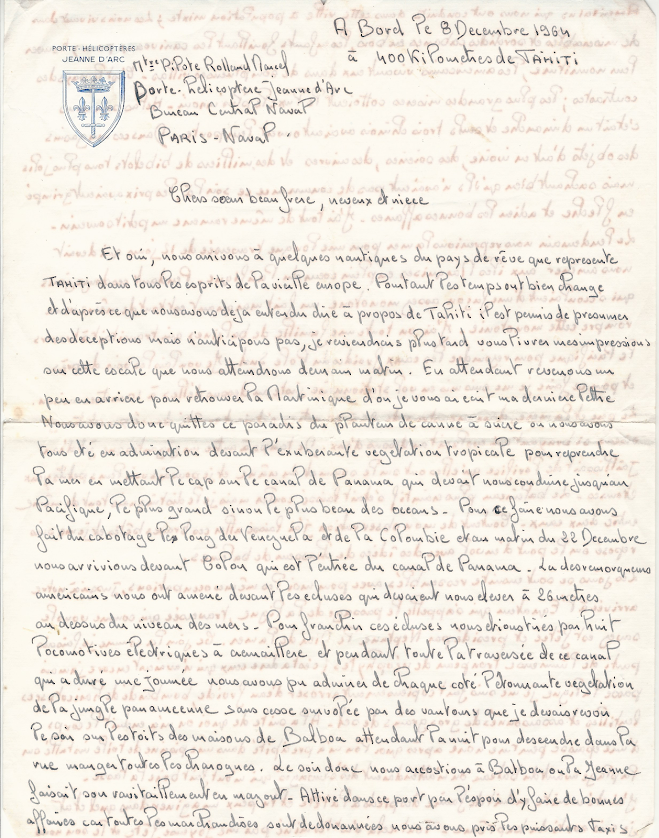 PORTE-HÉLICOPTÈRES
JEANNE D'ARC
A Bord le 8 Decembre 1964
à 400 Kilometres de TAHITI
Pilote Rolland Marcel
Porte-Hélicoptère Jeanne d'Arc
Bureau Central Naval
PARIS-Naval
Chers soeur beau frere, neveux et niece
Et oui, nous arrivons à quelques nautiques du pays de rêve que represente
TAHITI dans tous les esprits de la vieille europe. Pourtant les temps ont bien change
et d'après ce que nous avons deja entendu dire à propos de Tahiti il est permis de presumer
des deceptions mais n'anticipons pas, je reviendrais plus tard vous livrer mes impressions
sur cette escale que nous attendrons demain matin. En attendant revenons un
peu en arriere pour retrouver la Martinique d'ou je vous ai ecrit ma derniere lettre
Nous avons donc quittés ce paradis du planteur de canne à sucre ou nous avons
tous eté en admiration devant l'exuberante vegetation tropicale pour reprendre
la mer en mettant le cap sur le canal de Panama qui devait nous conduire jusqu'au
Pacifique, le plus grand sinon le plus beau des oceans - Pour ce faire nous avons
fait du cabotage le long du Venezuela et de la Colombie et au matin du 22 Decembre
nous arrivions devant Colon qui est l'entrée du canal de Panama - La des remorqueurs
americains nous ont amené devant les ecluses qui devaient nous elever à 26 metres
au dessus du niveau des mers - Pour franchir ces écluses nous etions tirés par huit
locomotives électriques à cremaillere et pendant toute la traversée de ce canal
qui a duré une journée nous avons pu admirer de chaque coté l'etonnante vegetation
de la jungle panameenne sans cesse survolée par des vautours que je devais revoir
le soir sur les toits des maisons de Balboa attendant la nuit pour descendre dans la
rue manger toutes les charognes. Le soir donc nous accostions à Balboa ou la Jeanne
faisait son ravitaillement en mazout - Attiré dans ce port par l'espoir d'y faire de bonnes
affaires car toutes les marchandises sont dedouanées nous avons pris les puissants Taxi